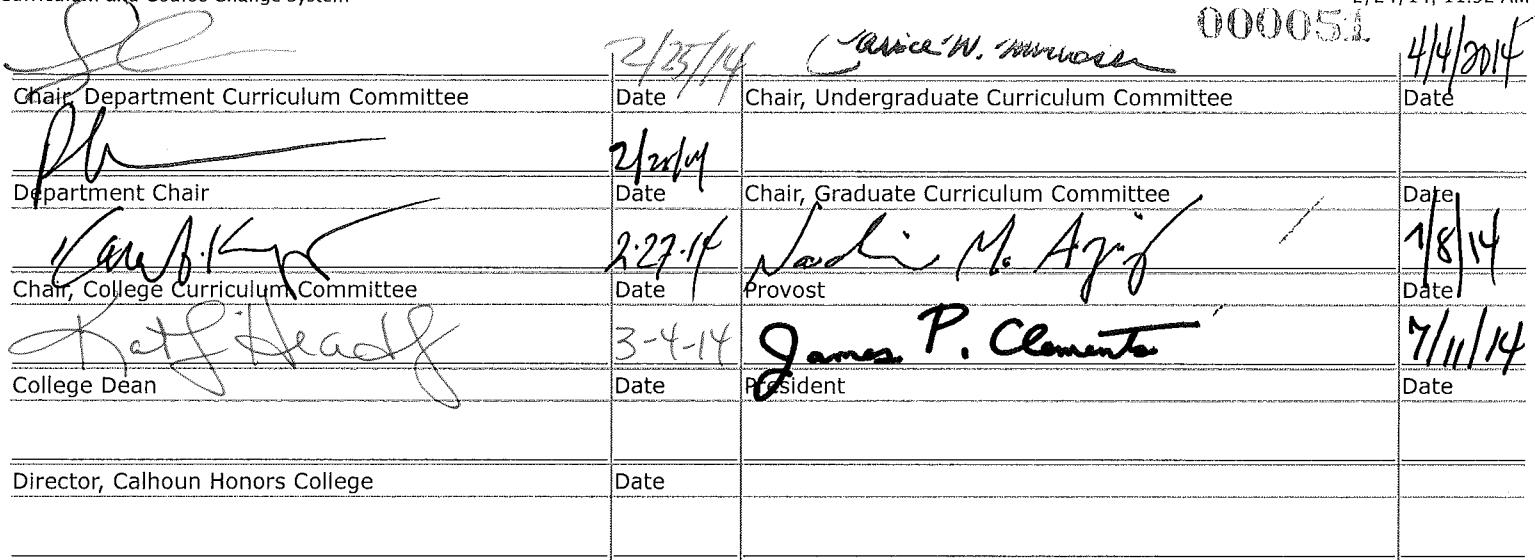 000051
2/25/14 Janice W. 4/4/2014
Chair, Department Curriculum Committee Date Chair, Undergraduate Curriculum Committee Date
Department Chair Date Chair, Graduate Curriculum Committee Date
2-27-14 M. Aziz 7/8/14
Chair, College Curriculum Committee Date Provost Date
3-4-14 James P. Clements 7/11/14
College Dean Date President Date
Director, Calhoun Honors College Date